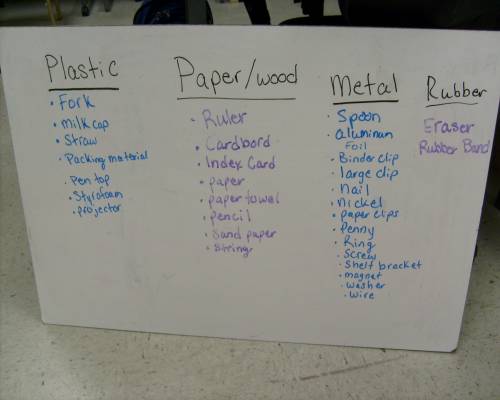 Plastic
• Fork
• Milk cap
• Straw
• Packing material
• Pen top
• Styrofoam
• projector
Paper/wood
• Ruler
• Cardbord
• Index Card
• paper
• paper towel
• pencil
• Sand paper
• String
Metal
• Spoon
• aluminum
Foil
• Binder clip
• large clip
• nail
• nickel
• paper clips
• Penny
• Ring
• Screw
• Shelf bracket
• magnet
• washer
• wire
Rubber
Eraser
Rubber Band